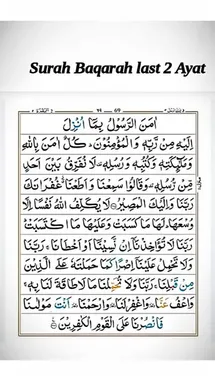 Surah Baqarah last 2 Ayat
اٰمَنَ الرَّسُوْلُ بِمَاۤ اُنْزِلَ
اِلَيْهِ مِنْ رَّبِّهٖ وَالْمُؤْمِنُوْنَ ؕ كُلٌّ اٰمَنَ بِاللّٰهِ
وَمَلٰٓئِكَتِهٖ وَكُتُبِهٖ وَرُسُلِهٖ ۟ لَا نُفَرِّقُ بَيْنَ اَحَدٍ
مِّنْ رُّسُلِهٖ ۟ وَقَالُوْا سَمِعْنَا وَاَطَعْنَا ٭ۗ غُفْرَانَكَ
رَبَّنَا وَاِلَيْكَ الْمَصِيْرُ ۝ لَا يُكَلِّفُ اللّٰهُ نَفْسًا اِلَّا
وُسْعَهَا ؕ لَهَا مَا كَسَبَتْ وَعَلَيْهَا مَا اكْتَسَبَتْ ؕ
رَبَّنَا لَا تُؤَاخِذْنَاۤ اِنْ نَّسِيْنَاۤ اَوْ اَخْطَاْنَا ۚ رَبَّنَا
وَلَا تَحْمِلْ عَلَيْنَاۤ اِصْرًا كَمَا حَمَلْتَهٗ عَلَى الَّذِيْنَ
مِنْ قَبْلِنَا ۚ رَبَّنَا وَلَا تُحَمِّلْنَا مَا لَا طَاقَةَ لَنَا بِهٖ ۚ
وَاعْفُ عَنَّا ۥ وَاغْفِرْ لَنَا ۥ وَارْحَمْنَا ۥ اَنْتَ مَوْلٰىنَا
فَانْصُرْنَا عَلَى الْقَوْمِ الْكٰفِرِيْنَ ۝